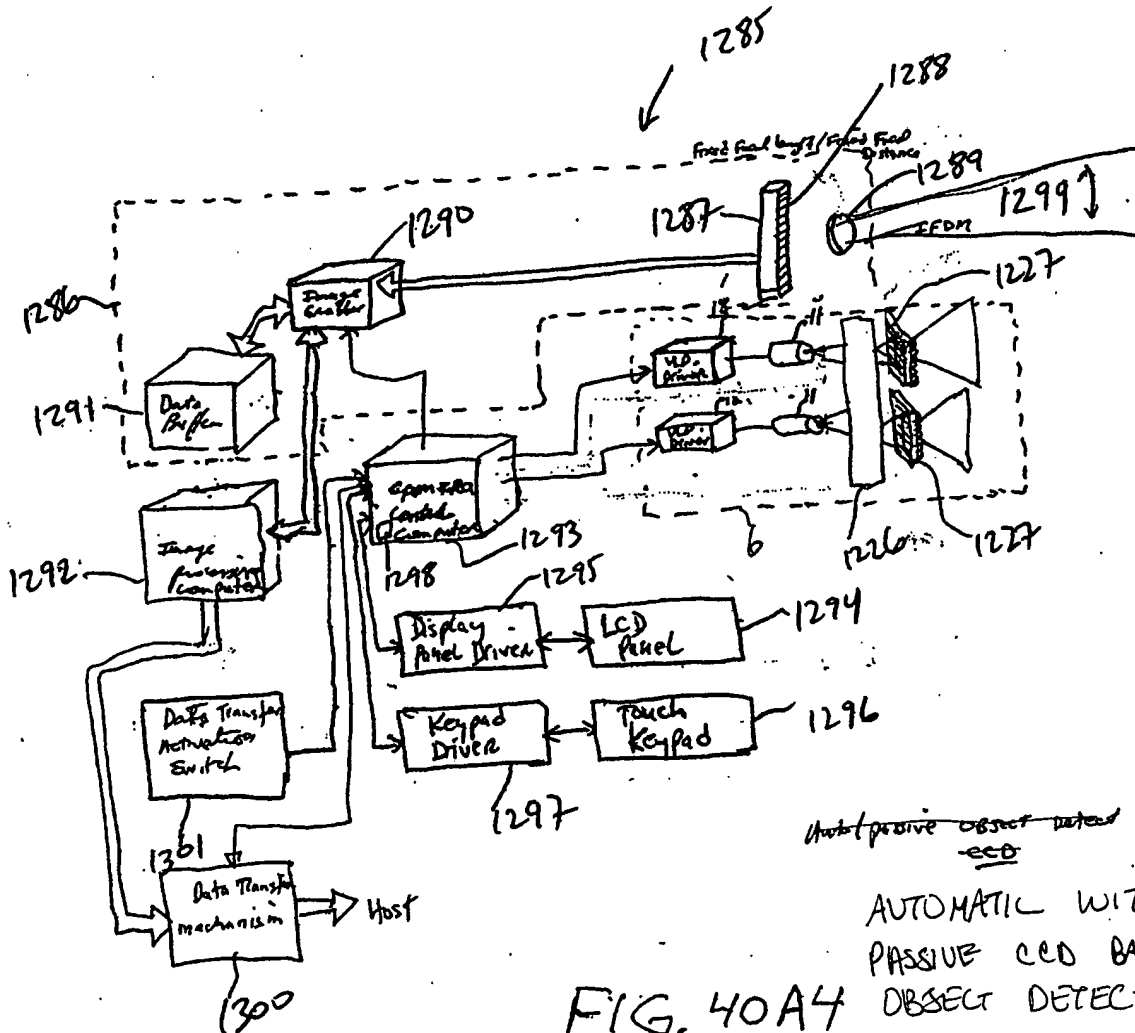 1285
1288
Fixed Focal Length / Fixed Focal
Distance
1289
1299
IFDM
1287
1290
1286
Image
Grabber
1227
12
11
VLD
Driver
1291
Data
Buffer
12
11
VLD
Driver
Camera
Control
Computer
1293
1298
6
1226
1227
1292
Image
processing
Computer
1295
Display
Panel Driver
LCD
Panel
1294
Data Transfer
Activation
Switch
Keypad
Driver
Touch
Keypad
1296
1297
1301
Data Transfer
mechanism
Host
1300
Auto/passive OBJECT Detect
CCD
AUTOMATIC WIT
PASSIVE CCD BA
FIG. 40A4 OBJECT DETEC